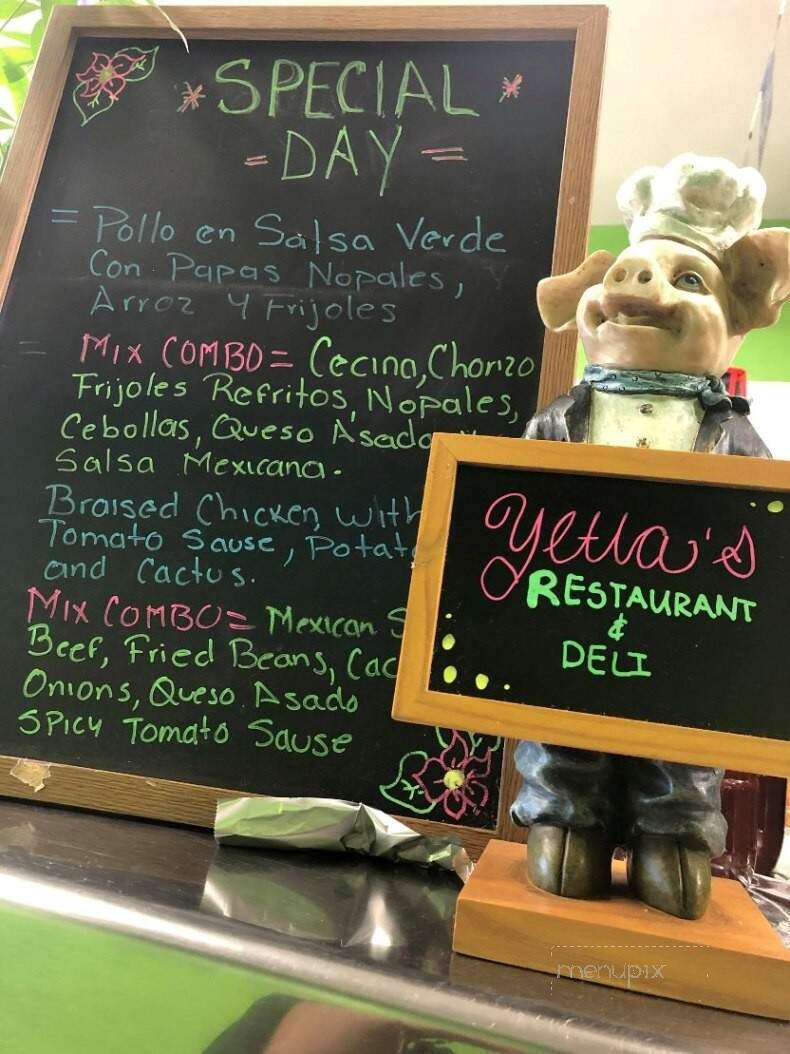 * SPECIAL *
= DAY =
= Pollo en Salsa Verde
Con Papas Nopales,
Arroz y Frijoles
= MIX COMBO = Cecina, Chorizo
Frijoles Refritos, Nopales,
Cebollas, Queso Asado
Salsa Mexicana.
Braised Chicken with
Tomato Sause, Potat
and Cactus.
MIX COMBO = Mexican S
Beef, Fried Beans, Cac
Onions, Queso Asado
SPICY Tomato Sause
Yetta's
RESTAURANT
&
DELI
menupix